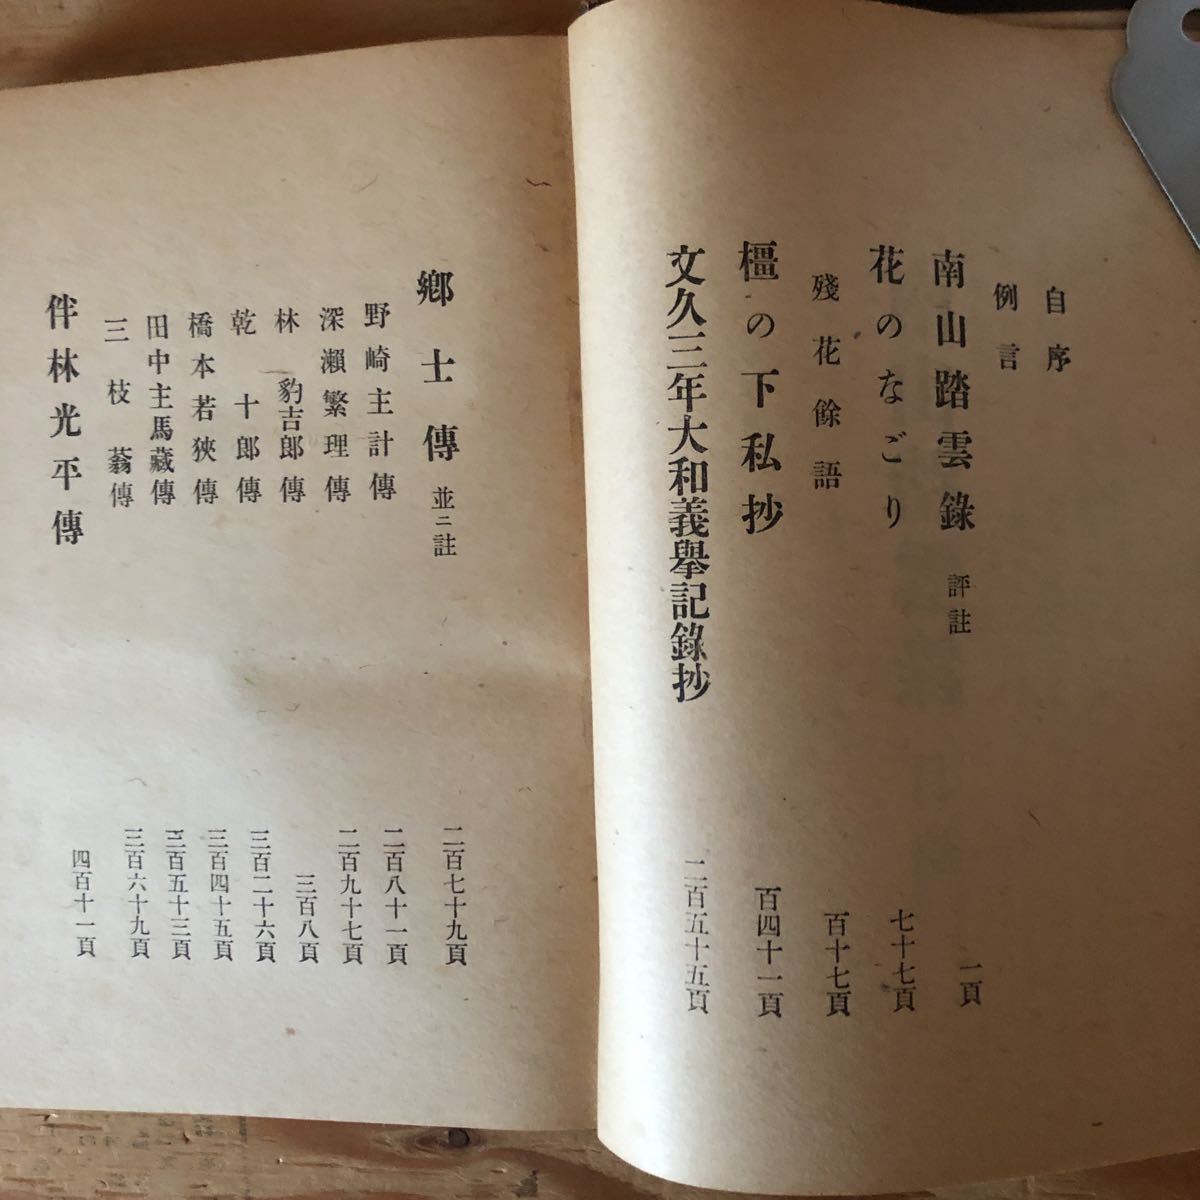 自序
例言
南山踏雲錄 評註 一頁
花のなごり 七十七頁
殘花餘語 百十七頁
橿の下私抄 百四十一頁
文久三年大和義擧記錄抄 二百五十五頁
鄕士傳 並ニ註 二百七十九頁
野崎主計傳 二百八十一頁
深瀨繁理傳 二百九十七頁
林豹吉郎傳 三百八頁
乾十郎傳 三百二十六頁
橋本若狹傳 三百四十五頁
田中主馬藏傳 三百五十三頁
三枝蓊傳 三百六十九頁
伴林光平傳 四百十一頁